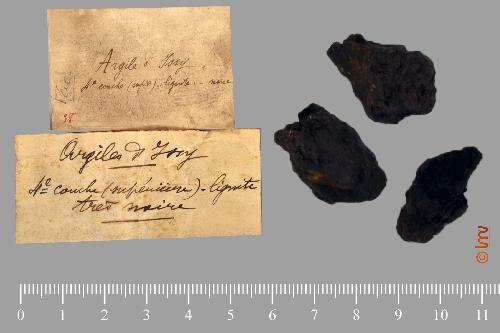 Argile d'Issy
4e couche (supre) - lignite - noire
38
Argiles d'Issy
4e couche (supérieure) - lignite
très noire
0 1 2 3 4 5 6 7 8 9 10 11